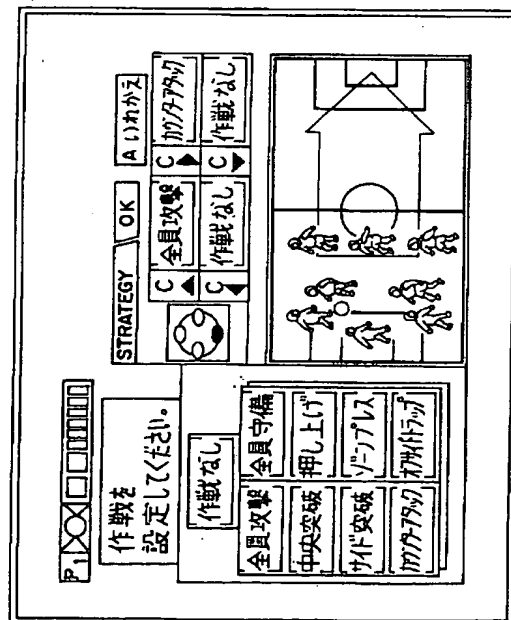 P1
作戦を
設定してください。
作戦なし
全員攻撃 全員守備
中央突破 押し上げ
サイド突破 ゾーンプレス
カウンターアタック オフサイドトラップ
STRATEGY OK A いれかえ
C 全員攻撃 C カウンターアタック
C 作戦なし C 作戦なし